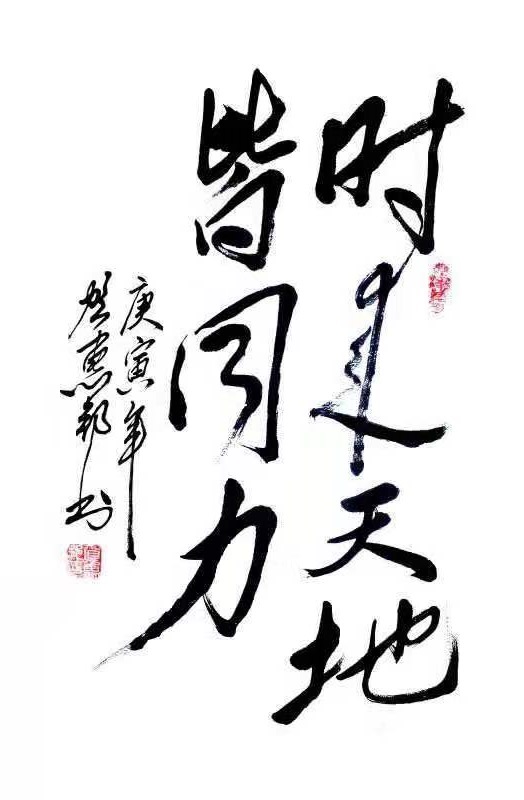 时来天地
皆同力
庚寅年
惠邦书